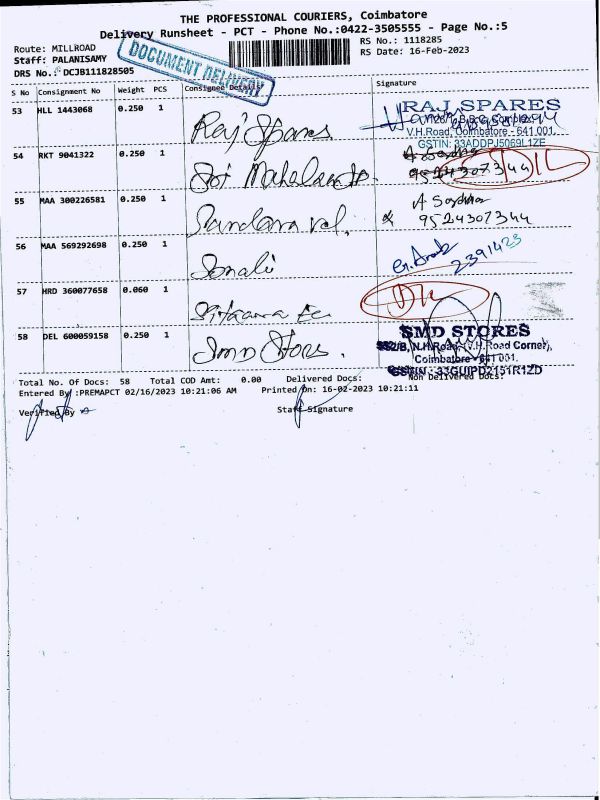 THE PROFESSIONAL COURIERS, Coimbatore
Delivery Runsheet - PCT - Phone No.:0422-3505555 - Page No.:5
Route: MILLROAD
Staff: PALANISAMY
DRS No.: DCJB111828505
DOCUMENT DELIVERY
RS No.: 1118285
RS Date: 16-Feb-2023
S No Consignment No Weight PCS Consignee Details Signature
53 HLL 1443068 0.250 1 Raj Spares
RAJ SPARES
V.H.Road, Coimbatore - 641 001.
GSTIN: 33ADDPJ5069L1ZE
54 RKT 9041322 0.250 1 Sri
9524307344
55 MAA 300226581 0.250 1
& 9524307344
56 MAA 569292698 0.250 1 Sonali
2391423
57 HRD 360077658 0.060 1
58 DEL 600059158 0.250 1 Smd Stores.
SMD STORES
N.H.Road, (V.H.Road Corner),
Coimbatore - 641 001.
GSTIN : 33GUIPD2151R1ZD
Total No. Of Docs: 58 Total COD Amt: 0.00 Delivered Docs: Non Delivered Docs:
Entered By :PREMAPCT 02/16/2023 10:21:06 AM Printed On: 16-02-2023 10:21:11
Verified By Staff Signature